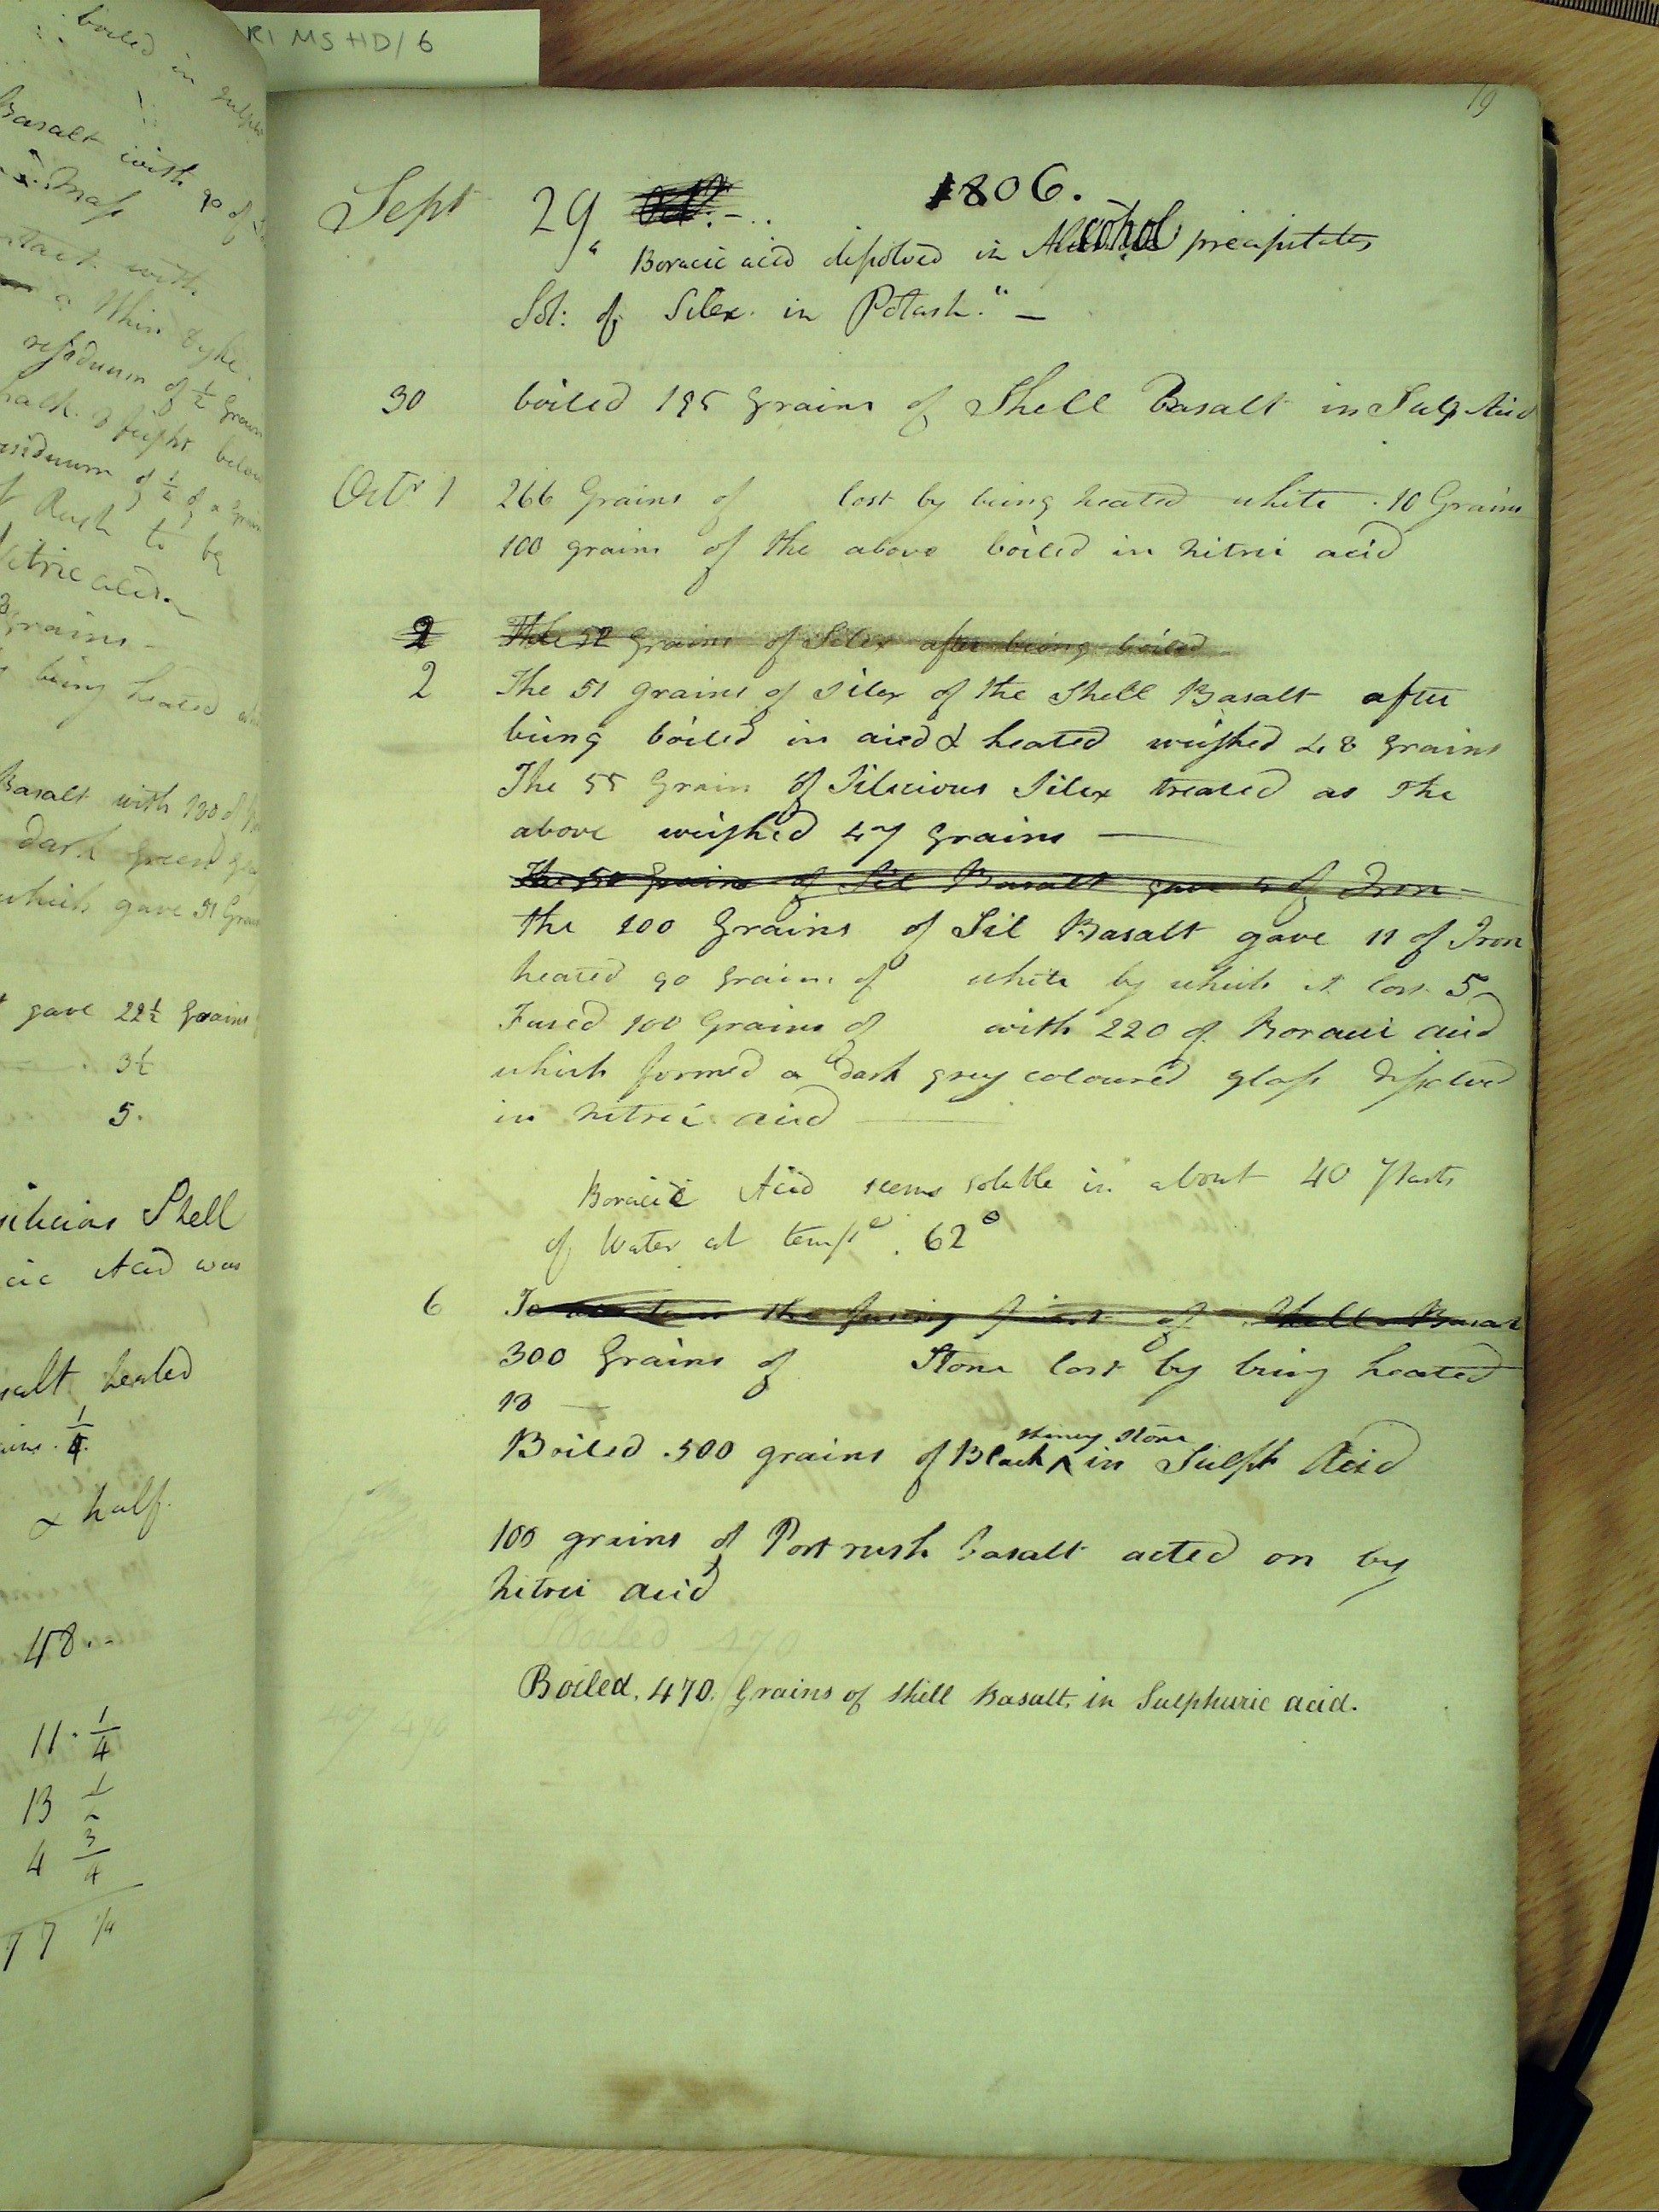 RI MS HD/6
boiled in
Basalt with 90 of
Mass
with
a thin dyke.
residuum of 1/2 Grain
below
residuum of 1/4 of a grain
to be
Nitric acid
Grains
being heated
Basalt with 180 of
dark green
which gave 31 Grains
gave 22 1/2 Grains
3 1/2
5.
Shell
Acid was
heated
1/4
& half.
48..
11. 1/4
13 1/2
4 3/4
77 1/4
19
Sept 29 Oct: 1806.
" Boracic acid dissolved in Alcohol precipitates
Sol: of Silex in Potash." —
30 boiled 195 Grains of Shell Basalt in Sulp Acid
Octr. 1 266 Grains of lost by being heated white . 10 Grains
100 grains of the above boiled in nitric acid
2 The 52 Grains of Silex after being boiled
2 The 51 grains of silex of the Shell Basalt after
being boiled in acid & heated weighed 48 grains
The 55 Grain of Silicious Silex treated as the
above weighed 47 grains —
The 50 grains of Sil Basalt gave 5 of Iron
the 100 Grains of Sil Basalt gave 11 of Iron
heated 90 grains of white by which it lost 5
Fused 100 Grains of with 220 of Boracic acid
which formed a dark grey coloured glass dissolved
in nitric acid —
Boracic Acid seems soluble in about 40 Parts
of Water at tempe. 62°
6 To the fusing point of Shell Basalt
300 Grains of Stone lost by being heated
13 —
Boiled .500 grains of Black ^ shiney stone in Sulph Acid
100 grains of Portrush basalt acted on by
nitric acid
Boiled 470
Boiled. 470. Grains of Shell Basalt, in Sulphuric acid.